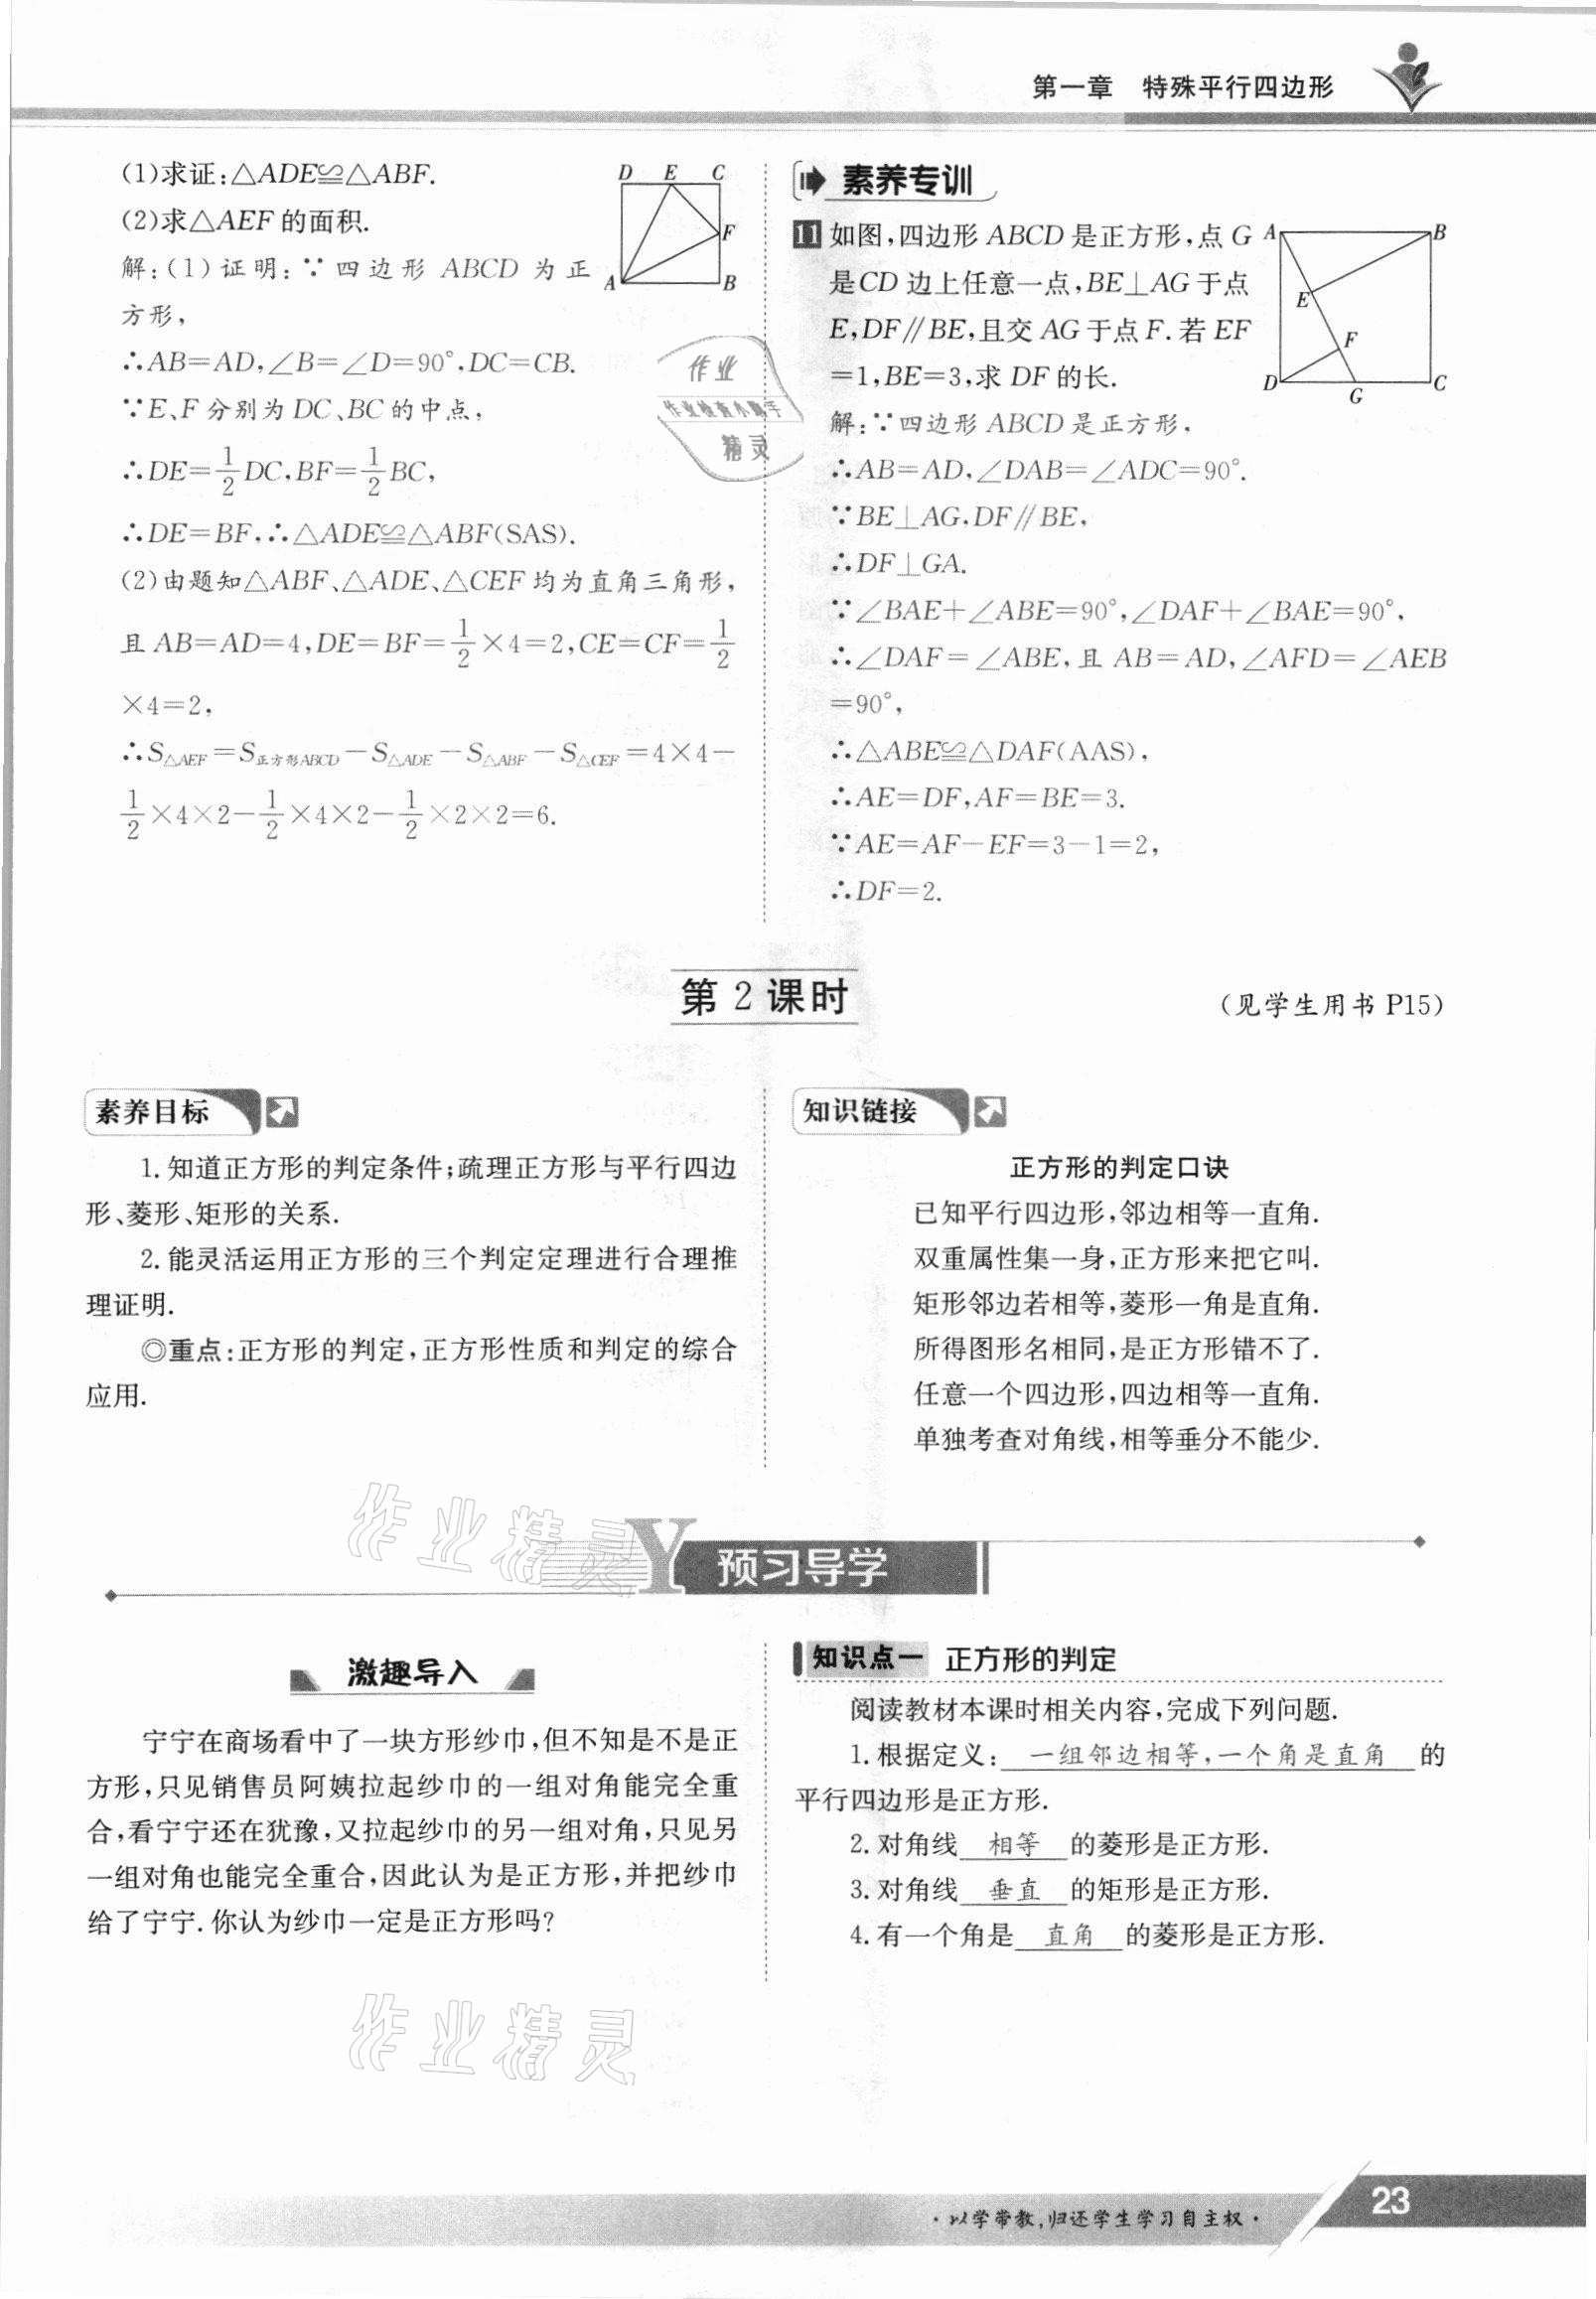 第一章 特殊平行四边形
(1)求证:△ADE≌△ABF.
(2)求△AEF的面积.
解:(1)证明:∵四边形 ABCD 为正
方形,
∴AB=AD,∠B=∠D=90°,DC=CB.
∵E、F分别为DC、BC的中点,
∴DE=1/2DC,BF=1/2BC,
∴DE=BF,∴△ADE≌△ABF(SAS).
(2)由题知△ABF、△ADE、△CEF均为直角三角形,
且AB=AD=4,DE=BF=1/2×4=2,CE=CF=1/2
×4=2,
∴S△AEF=S正方形ABCD-S△ADE-S△ABF-S△CEF=4×4-
1/2×4×2-1/2×4×2-1/2×2×2=6.
D E C
F
A B
作业
作业检查小助手
精灵
素养专训
11 如图,四边形ABCD是正方形,点G
是CD边上任意一点,BE⊥AG于点
E,DF∥BE,且交AG于点F.若EF
=1,BE=3,求DF的长.
解:∵四边形ABCD是正方形,
∴AB=AD,∠DAB=∠ADC=90°.
∵BE⊥AG,DF∥BE,
∴DF⊥GA.
∵∠BAE+∠ABE=90°,∠DAF+∠BAE=90°,
∴∠DAF=∠ABE,且AB=AD,∠AFD=∠AEB
=90°,
∴△ABE≌△DAF(AAS),
∴AE=DF,AF=BE=3.
∵AE=AF-EF=3-1=2,
∴DF=2.
A B
E
F
D G C
第2课时
(见学生用书P15)
素养目标
1.知道正方形的判定条件;疏理正方形与平行四边
形、菱形、矩形的关系.
2.能灵活运用正方形的三个判定定理进行合理推
理证明.
◎重点:正方形的判定,正方形性质和判定的综合
应用.
知识链接
正方形的判定口诀
已知平行四边形,邻边相等一直角.
双重属性集一身,正方形来把它叫.
矩形邻边若相等,菱形一角是直角.
所得图形名相同,是正方形错不了.
任意一个四边形,四边相等一直角.
单独考查对角线,相等垂分不能少.
作业精灵
Y 预习导学
激趣导入
宁宁在商场看中了一块方形纱巾,但不知是不是正
方形,只见销售员阿姨拉起纱巾的一组对角能完全重
合,看宁宁还在犹豫,又拉起纱巾的另一组对角,只见另
一组对角也能完全重合,因此认为是正方形,并把纱巾
给了宁宁.你认为纱巾一定是正方形吗?
知识点一 正方形的判定
阅读教材本课时相关内容,完成下列问题.
1.根据定义: 一组邻边相等,一个角是直角 的
平行四边形是正方形.
2.对角线 相等 的菱形是正方形.
3.对角线 垂直 的矩形是正方形.
4.有一个角是 直角 的菱形是正方形.
作业精灵
·以学带教,归还学生学习自主权·
23